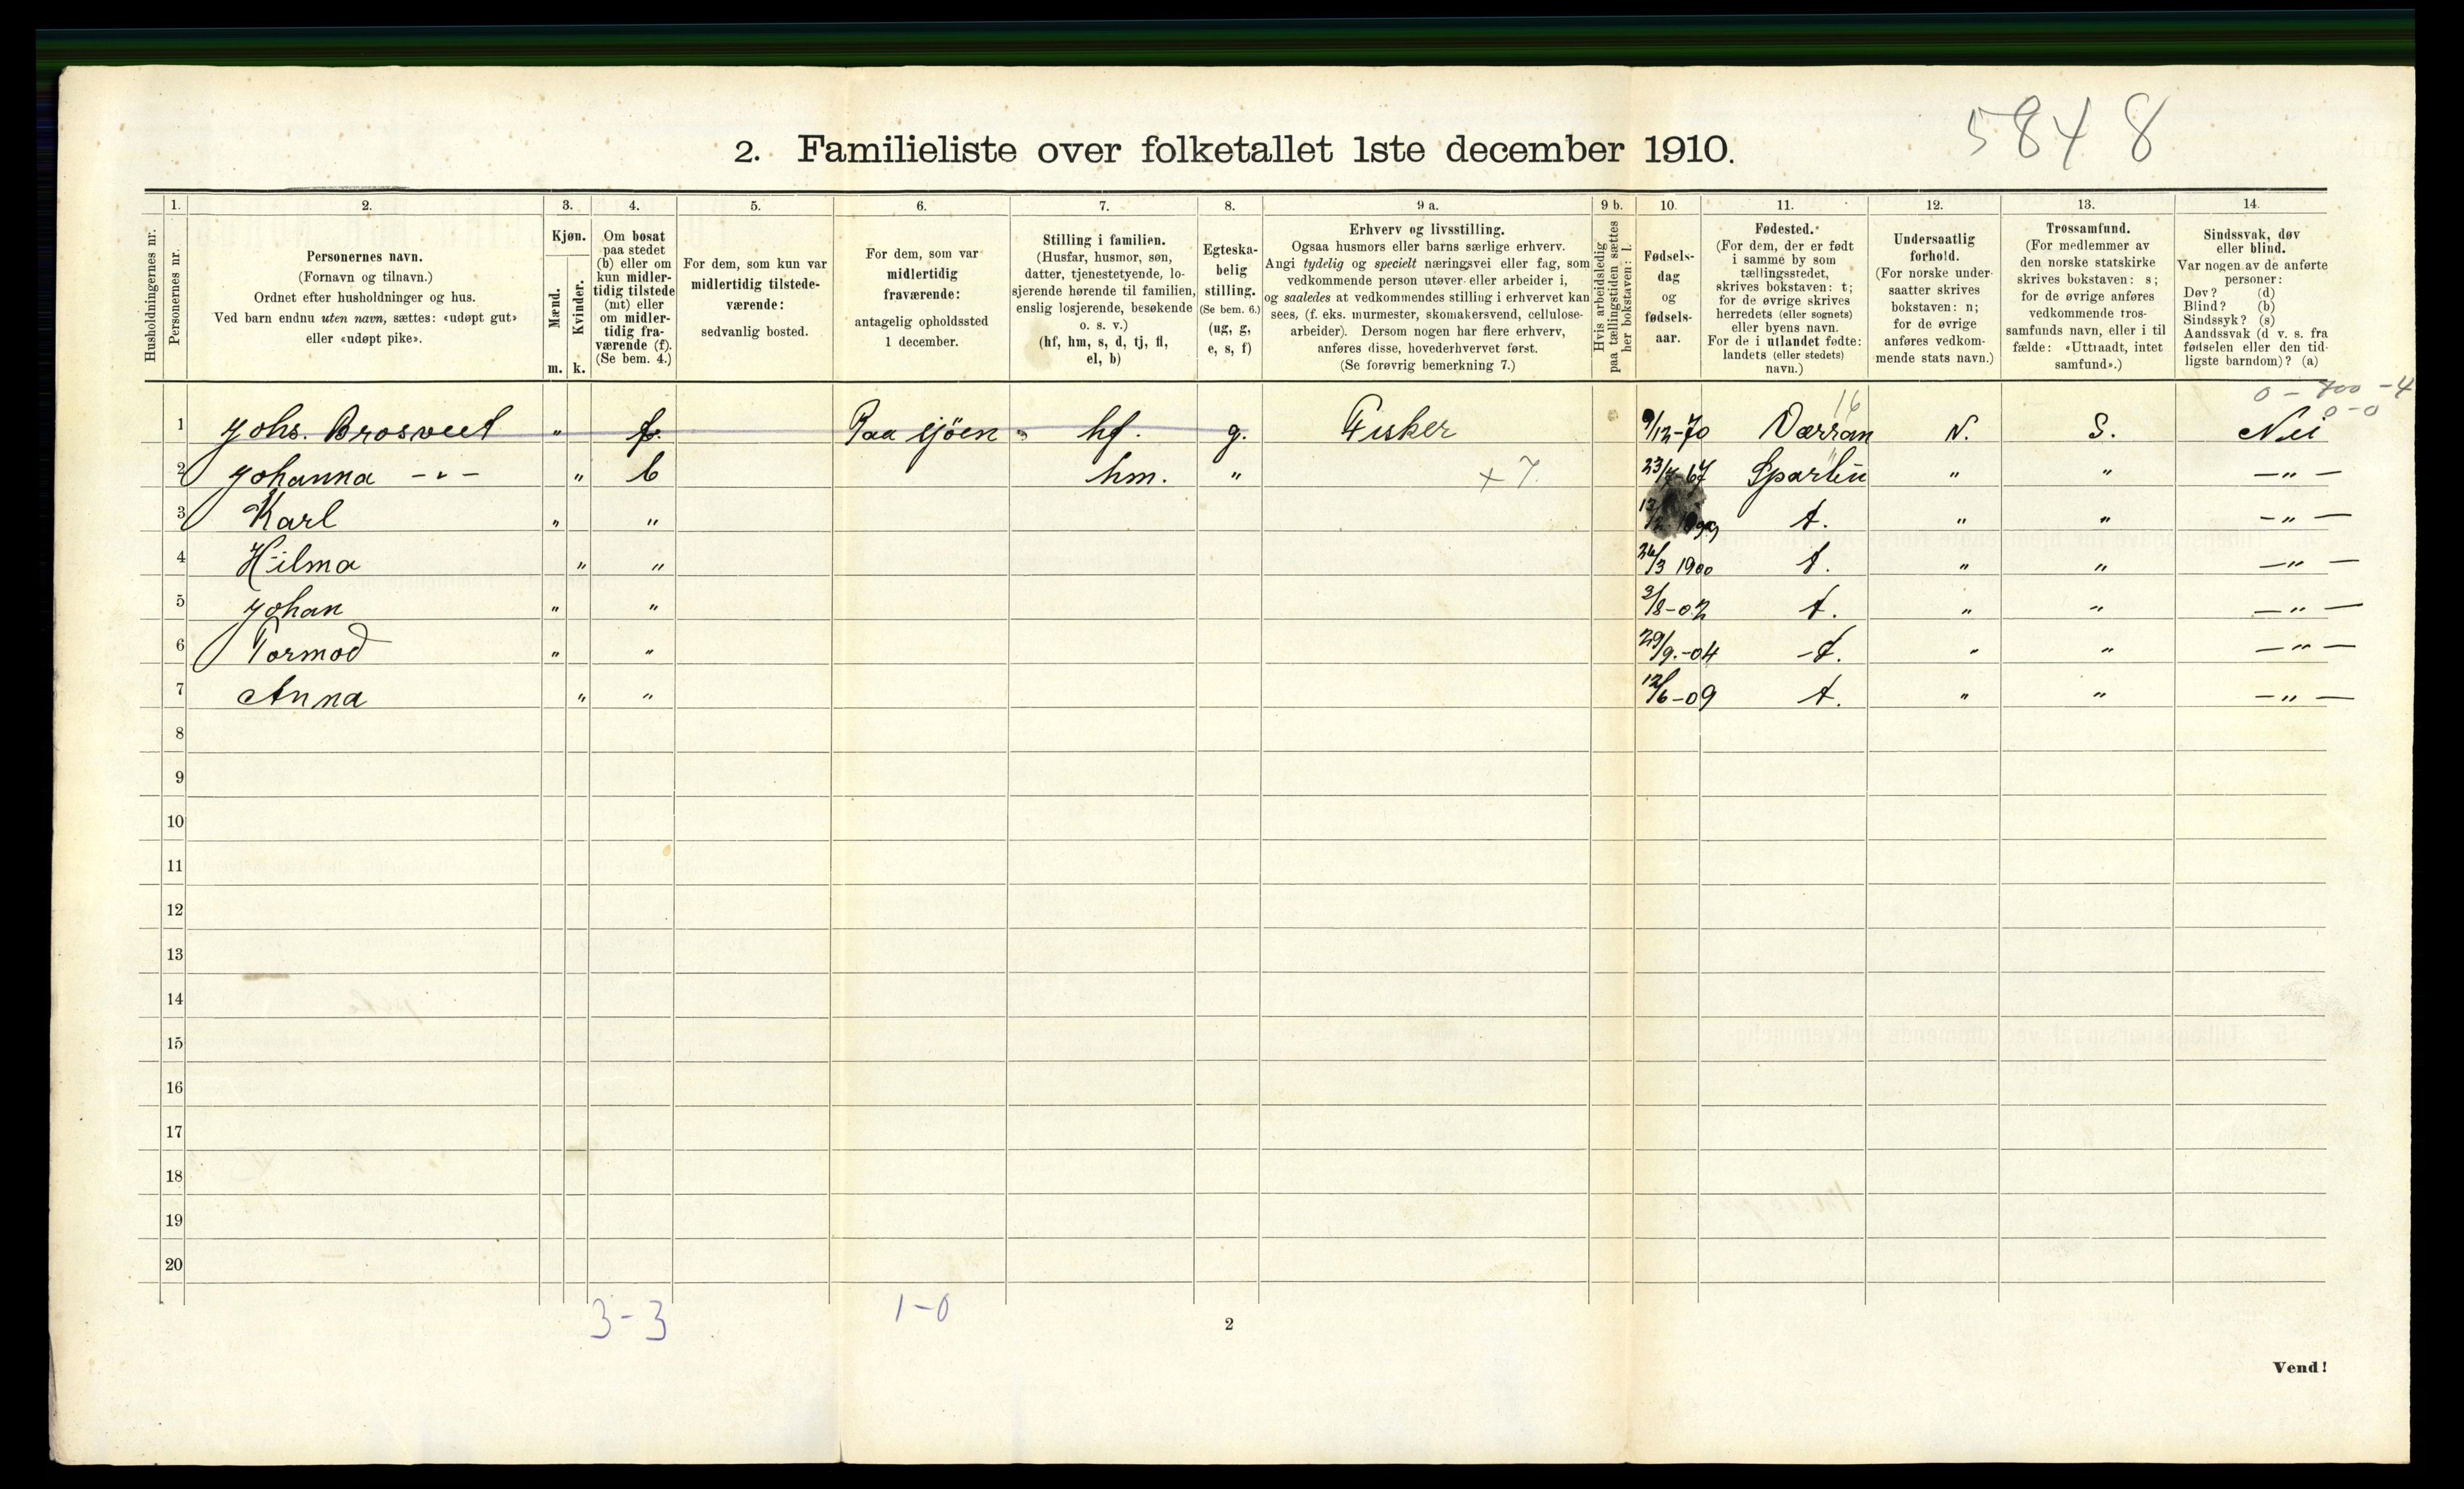 5848
2. Familieliste over folketallet 1ste december 1910.
Husholdningernes nr.
1. Personernes nr.
2. Personernes navn.
(Fornavn og tilnavn.)
Ordnet efter husholdninger og hus.
Ved barn endnu uten navn, sættes: «udøpt gut»
eller «udøpt pike».
3. Kjøn.
Mænd. m.
Kvinder. k.
4. Om bosat
paa stedet
(b) eller om
kun midler-
tidig tilstede
(mt) eller
om midler-
tidig fra-
værende (f).
(Se bem. 4.)
5. For dem, som kun var
midlertidig tilstede-
værende:
sedvanlig bosted.
6. For dem, som var
midlertidig
fraværende:
antagelig opholdssted
1 december.
7. Stilling i familien.
(Husfar, husmor, søn,
datter, tjenestetyende, lo-
sjerende hørende til familien,
enslig losjerende, besøkende
o. s. v.)
(hf, hm, s, d, tj, fl,
el, b)
8. Egteska-
belig
stilling.
(Se bem. 6.)
(ug, g,
e, s, f)
9 a. Erhverv og livsstilling.
Ogsaa husmors eller barns særlige erhverv.
Angi tydelig og specielt næringsvei eller fag, som
vedkommende person utøver eller arbeider i,
og saaledes at vedkommendes stilling i erhvervet kan
sees, (f. eks. murmester, skomakersvend, cellulose-
arbeider). Dersom nogen har flere erhverv,
anføres disse, hovederhvervet først.
(Se forøvrig bemerkning 7.)
9 b. Hvis arbeidsledig
paa tællingstiden sættes
her bokstaven: l.
10. Fødsels-
dag
og
fødsels-
aar.
11. Fødested.
(For dem, der er født
i samme by som
tællingsstedet,
skrives bokstaven: t;
for de øvrige skrives
herredets (eller sognets)
eller byens navn.
For de i utlandet fødte:
landets (eller stedets)
navn.)
12. Undersaatlig
forhold.
(For norske under-
saatter skrives
bokstaven: n;
for de øvrige
anføres vedkom-
mende stats navn.)
13. Trossamfund.
(For medlemmer av
den norske statskirke
skrives bokstaven: s;
for de øvrige anføres
vedkommende tros-
samfunds navn, eller i til-
fælde: «Uttraadt, intet
samfund».)
14. Sindssvak, døv
eller blind.
Var nogen av de anførte
personer:
Døv? (d)
Blind? (b)
Sindssyk? (s)
Aandssvak (d v. s. fra
fødselen eller den tid-
ligste barndom)? (a)
16 0 - 700 - 4
0 - 0
1 Johs. Brosveet " f. Paa sjöen hf. g. Fisker 9/12-70 Værran N. S. Nei
2 Johanna - " - " b hm. " + 7 23/7-67 Sparbu " " - " -
3 Karl " " t. " " - " -
4 Hilma " " 26/3 1900 t. " " - " -
5 Johan " " 3/8-02 t. " " - " -
6 Tormod " " 29/9.-04 t. " " - " -
7 Anna " " 12/6-09 t. " " - " -
8
9
10
11
12
13
14
15
16
17
18
19
20
3-3 1-0
2
Vend!